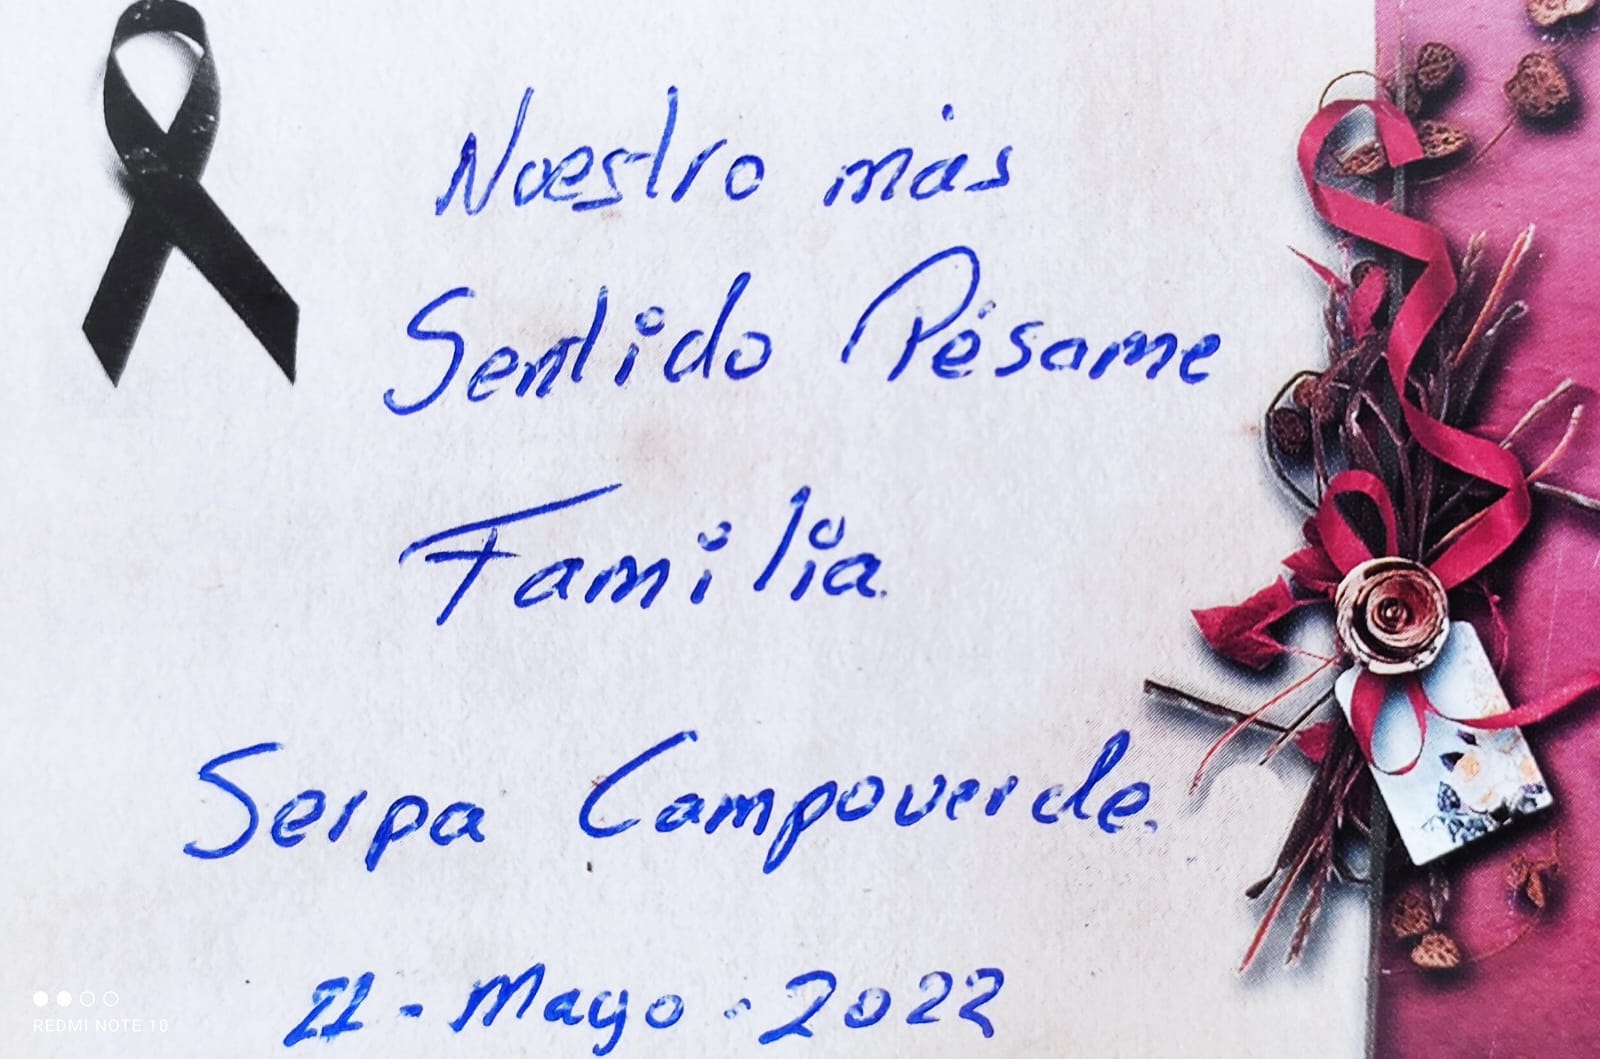 Nuestro más
Sentido Pésame
Familia
Serpa Campoverde.
21-Mayo-2022
REDMI NOTE 10